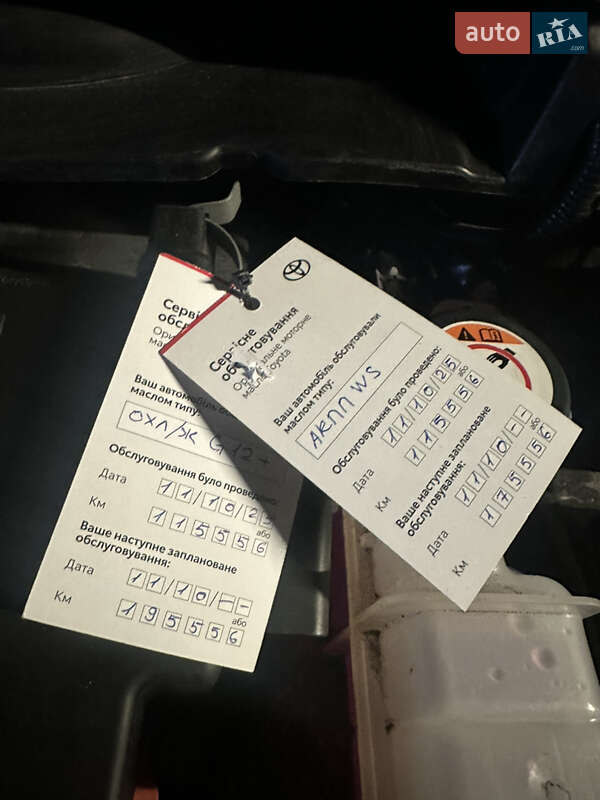 auto RIA.com
Серві
обсл
Ори
ма
Ваш автомобіль об
маслом типу:
ОХЛ/Ж G12+
Обслуговування було проведено:
Дата 11/10/25
або
Км 115556
Ваше наступне заплановане
обслуговування:
Дата 11/10/--
або
Км 195556
Сервісне
обслуговування
Оригінальне моторне
масло Toyota
Ваш автомобіль обслуговували
маслом типу:
АКПП WS
Обслуговування було проведено:
Дата 11/10/25
або
Км 115556
Ваше наступне заплановане
обслуговування:
Дата 11/10/--
або
Км 175556